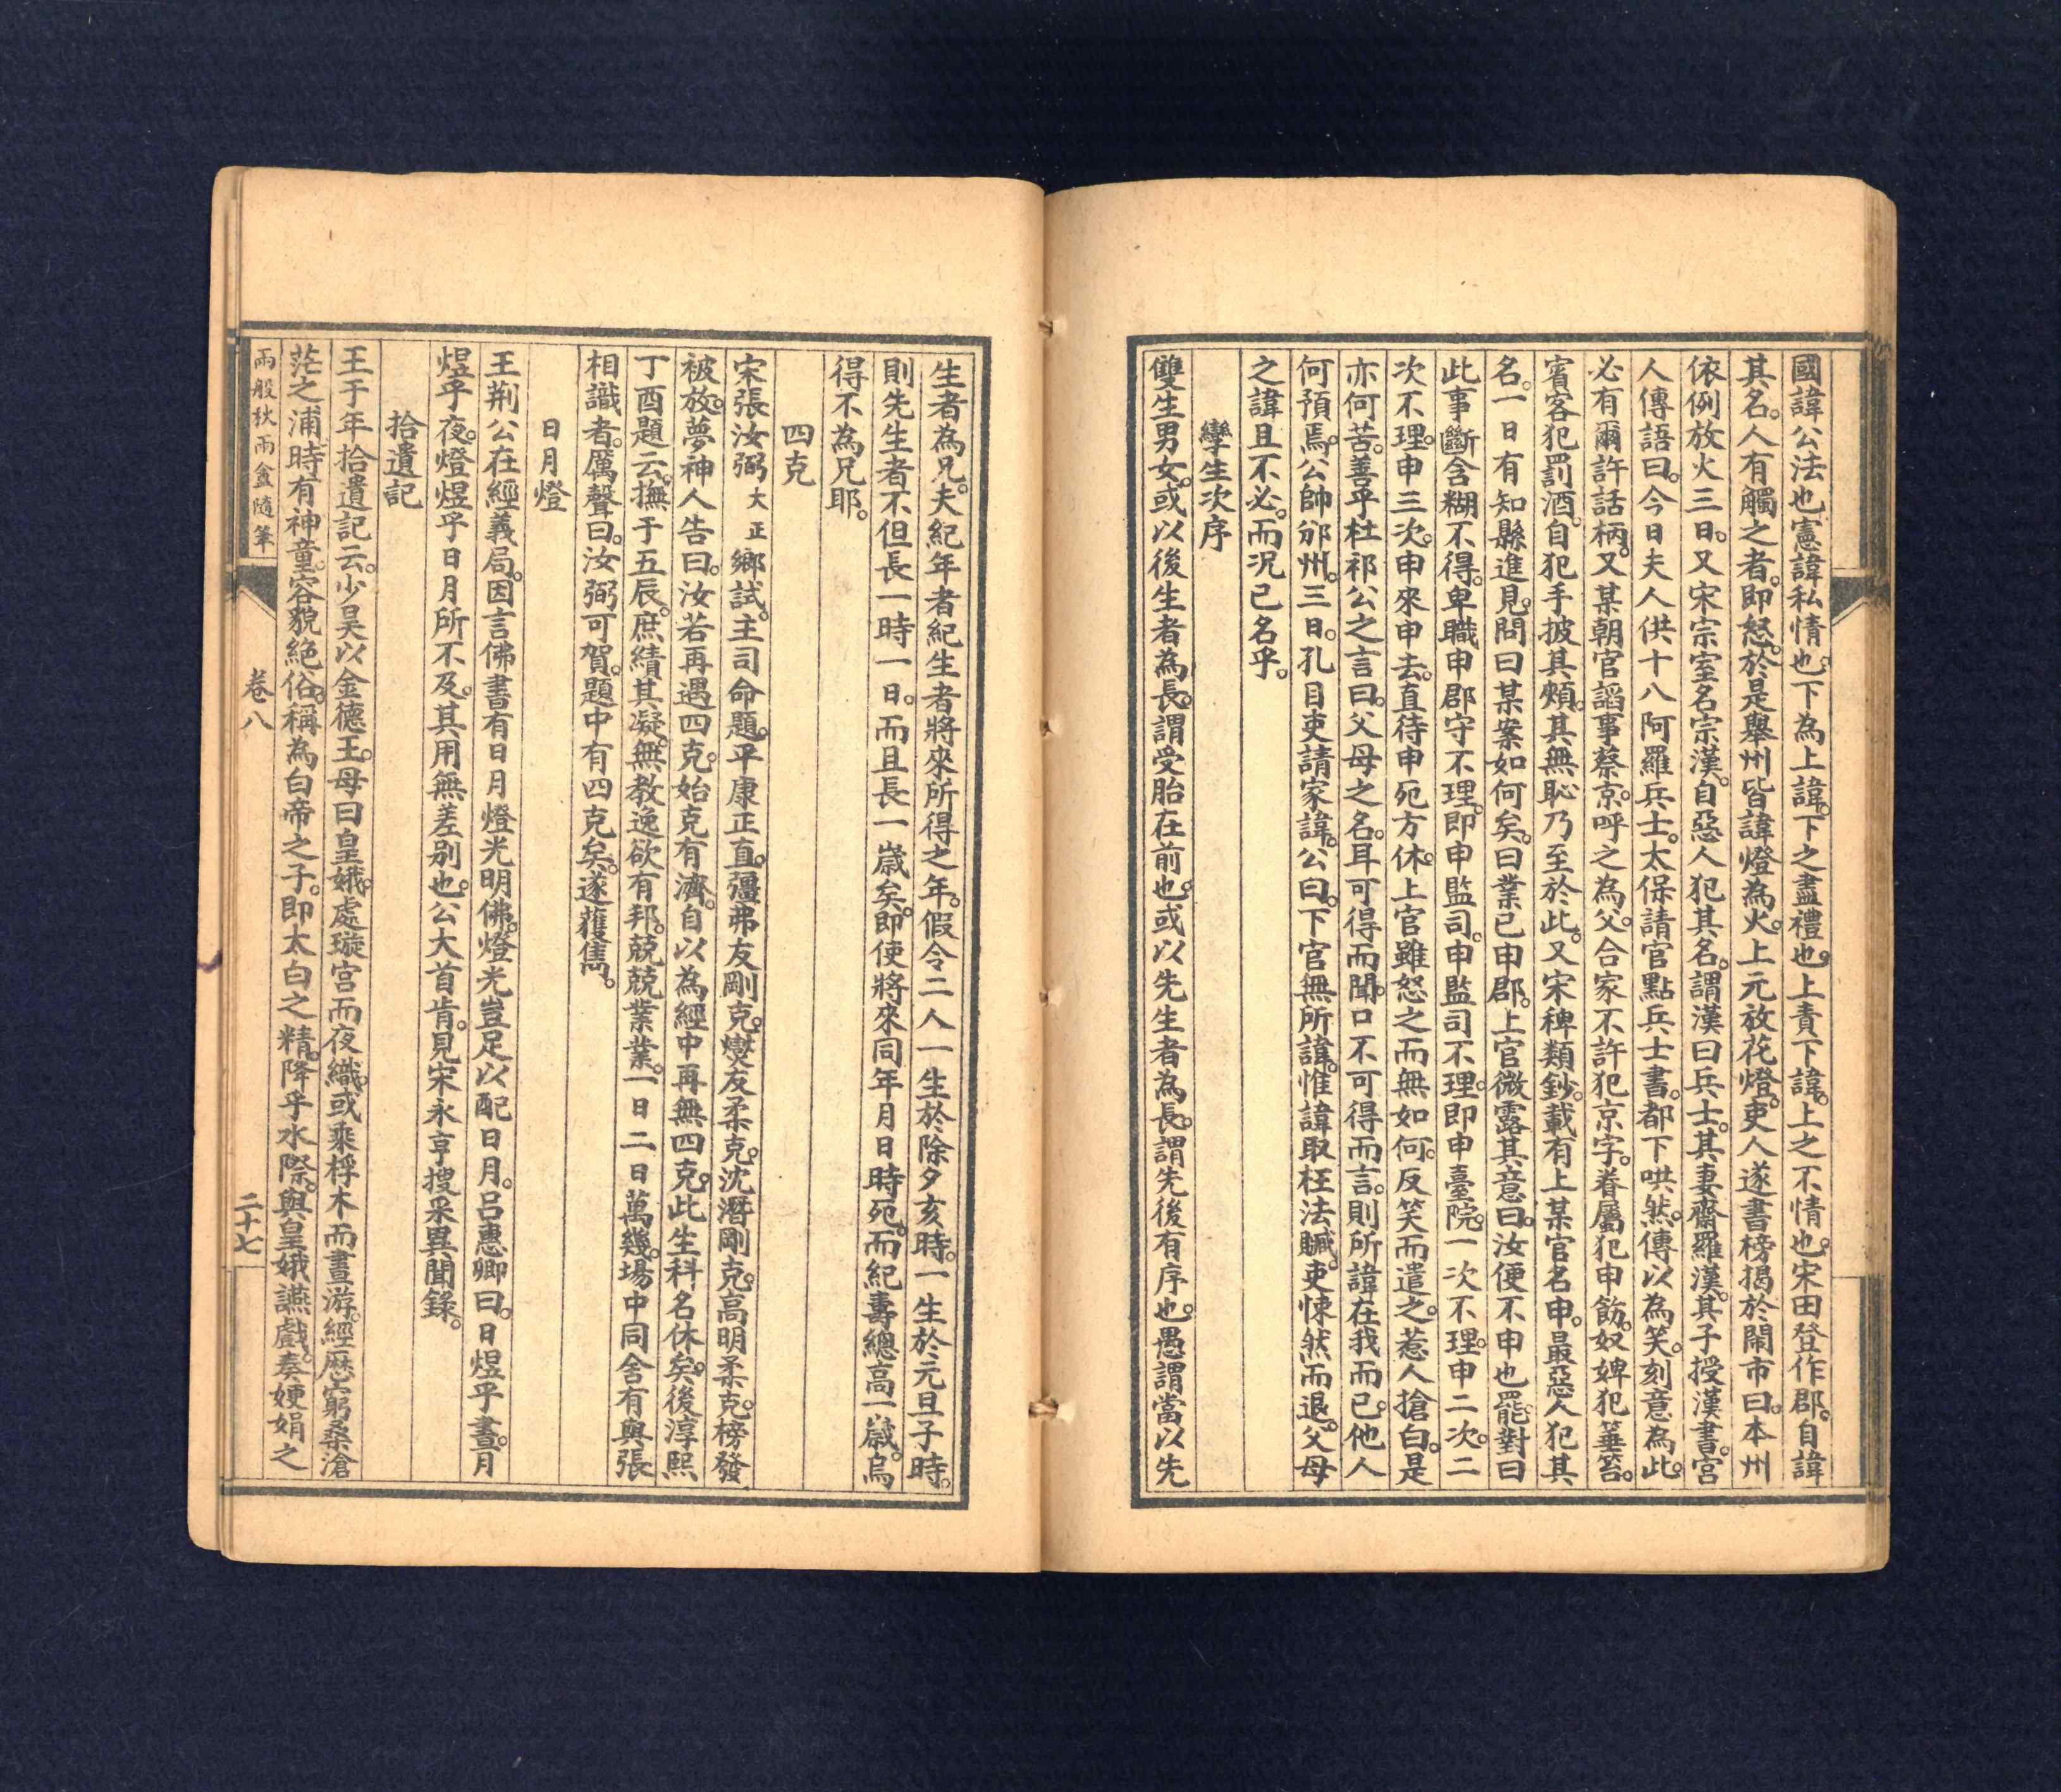 國諱公法也憲諱私情也。下為上諱。下之盡禮也。上責下諱。上之不情也。宋田登作郡。自諱
其名。人有觸之者。即怒。於是舉州皆諱燈為火。上元放花燈。吏人遂書榜揭於鬧市曰。本州
依例放火三日。又宋宗室名宗漢。自惡人犯其名。謂漢曰兵士。其妻齋羅漢。其子授漢書。宮
人傳語曰。今日夫人供十八阿羅兵士。太保請官點兵士書。都下哄然。傳以為笑。刻意為此。
必有爾許話柄。又某朝官謟事蔡京。呼之為父。合家不許犯京字。眷屬犯申飭。奴婢犯箠笞。
賓客犯罰酒。自犯手披其頰。其無恥乃至於此。又宋稗類鈔。載有上某官名申。最惡人犯其
名。一日有知縣進見。問曰某案如何矣。曰業已申郡。上官微露其意曰。汝便不申也罷。對曰
此事斷含糊不得。卑職申郡守不理。即申監司。申監司不理。即申臺院。一次不理。申二次。二
次不理。申三次。申來申去。直待申死方休。上官雖怒之而無如何。反笑而遣之。惹人搶白。是
亦何苦。善乎杜祁公之言曰。父母之名。耳可得而聞。口不可得而言。則所諱在我而已。他人
何預焉。公帥邠州。三日。孔目吏請家諱。公曰。下官無所諱。惟諱取枉法贓。吏悚然而退。父母
之諱且不必。而況已名乎。
孿生次序
雙生男女。或以後生者為長。謂受胎在前也。或以先生者為長。謂先後有序也。愚謂當以先
生者為兄。夫紀年者紀生者將來所得之年。假令二人一生於除夕亥時。一生於元旦子時。
則先生者不但長一時一日。而且長一歲矣。即使將來同年月日時死。而紀壽總高一歲。烏
得不為兄耶。
四克
宋張汝弼大正鄉試。主司命題。平康正直。彊弗友剛克。燮友柔克。沈潛剛克。高明柔克。榜發
被放。夢神人告曰。汝若再遇四克。始克有濟。自以為經中再無四克。此生科名休矣。後淳熙
丁酉題云。撫于五辰。庶績其凝。無教逸欲有邦。兢兢業業。一日二日萬幾。場中同舍有與張
相識者。厲聲曰。汝弼可賀。題中有四克矣。遂獲雋。
日月燈
王荊公在經義局。因言佛書有日月燈光明佛。燈光豈足以配日月。呂惠卿曰。日煜乎晝。月
煜乎夜。燈煜乎日月所不及。其用無差別也。公大首肯。見宋永亨搜采異聞錄。
拾遺記
王于年拾遺記云。少昊以金德王。母曰皇娥。處璇宮而夜織。或乘桴木而晝游。經歷窮桑滄
茫之浦。時有神童。容貌絕俗。稱為白帝之子。即太白之精。降乎水際。與皇娥讌戲。奏㛹娟之
兩般秋雨盦隨筆
卷八
二十七